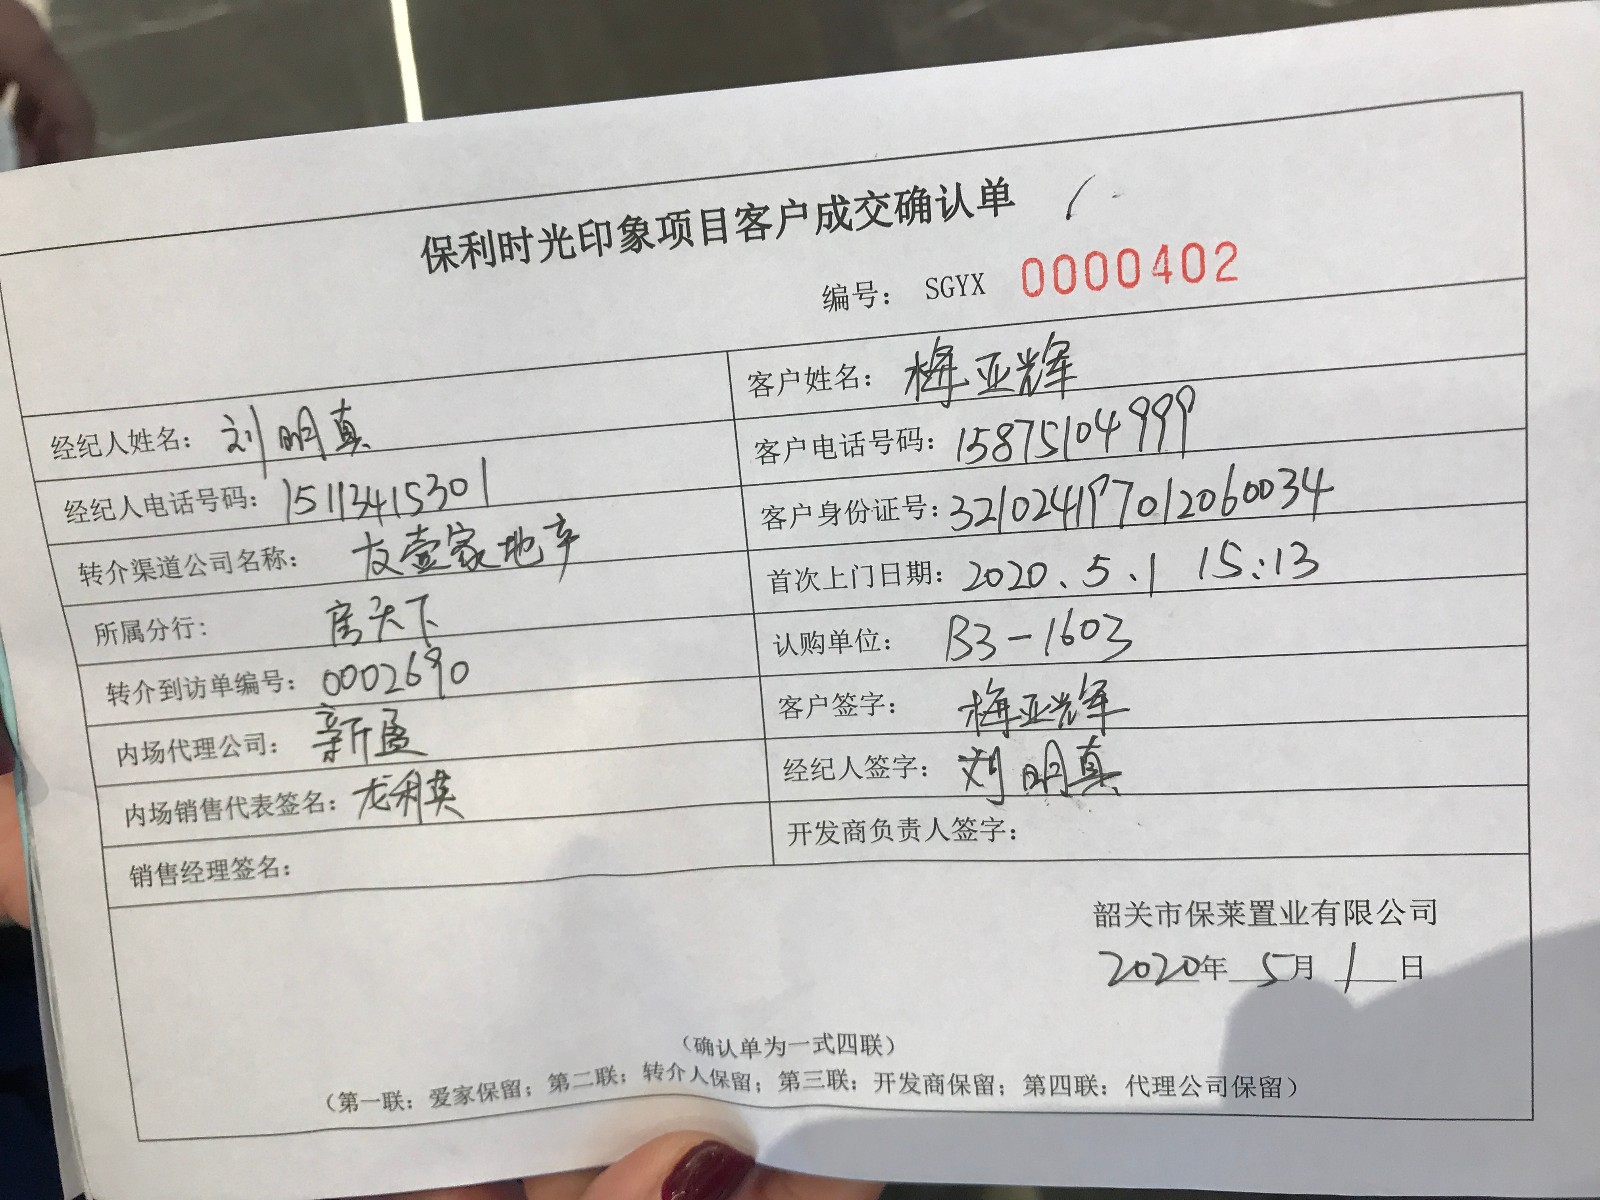 保利时光印象项目客户成交确认单
编号： SGYX 0000402
客户姓名： 梅亚辉
经纪人姓名： 刘明真
客户电话号码：15875104999
经纪人电话号码：15113415301
客户身份证号：321024197012060034
转介渠道公司名称： 友壹家地产
首次上门日期：2020.5.1 15:13
所属分行： 房天下
认购单位： B3-1603
转介到访单编号：0002690
客户签字： 梅亚辉
内场代理公司： 新盈
经纪人签字： 刘明真
内场销售代表签名：龙利英
开发商负责人签字：
销售经理签名：
韶关市保莱置业有限公司
2020年 5月 1 日
（确认单为一式四联）
（第一联：爱家保留；第二联：转介人保留；第三联：开发商保留；第四联：代理公司保留）